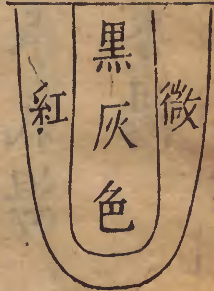 微
黑灰色
紅